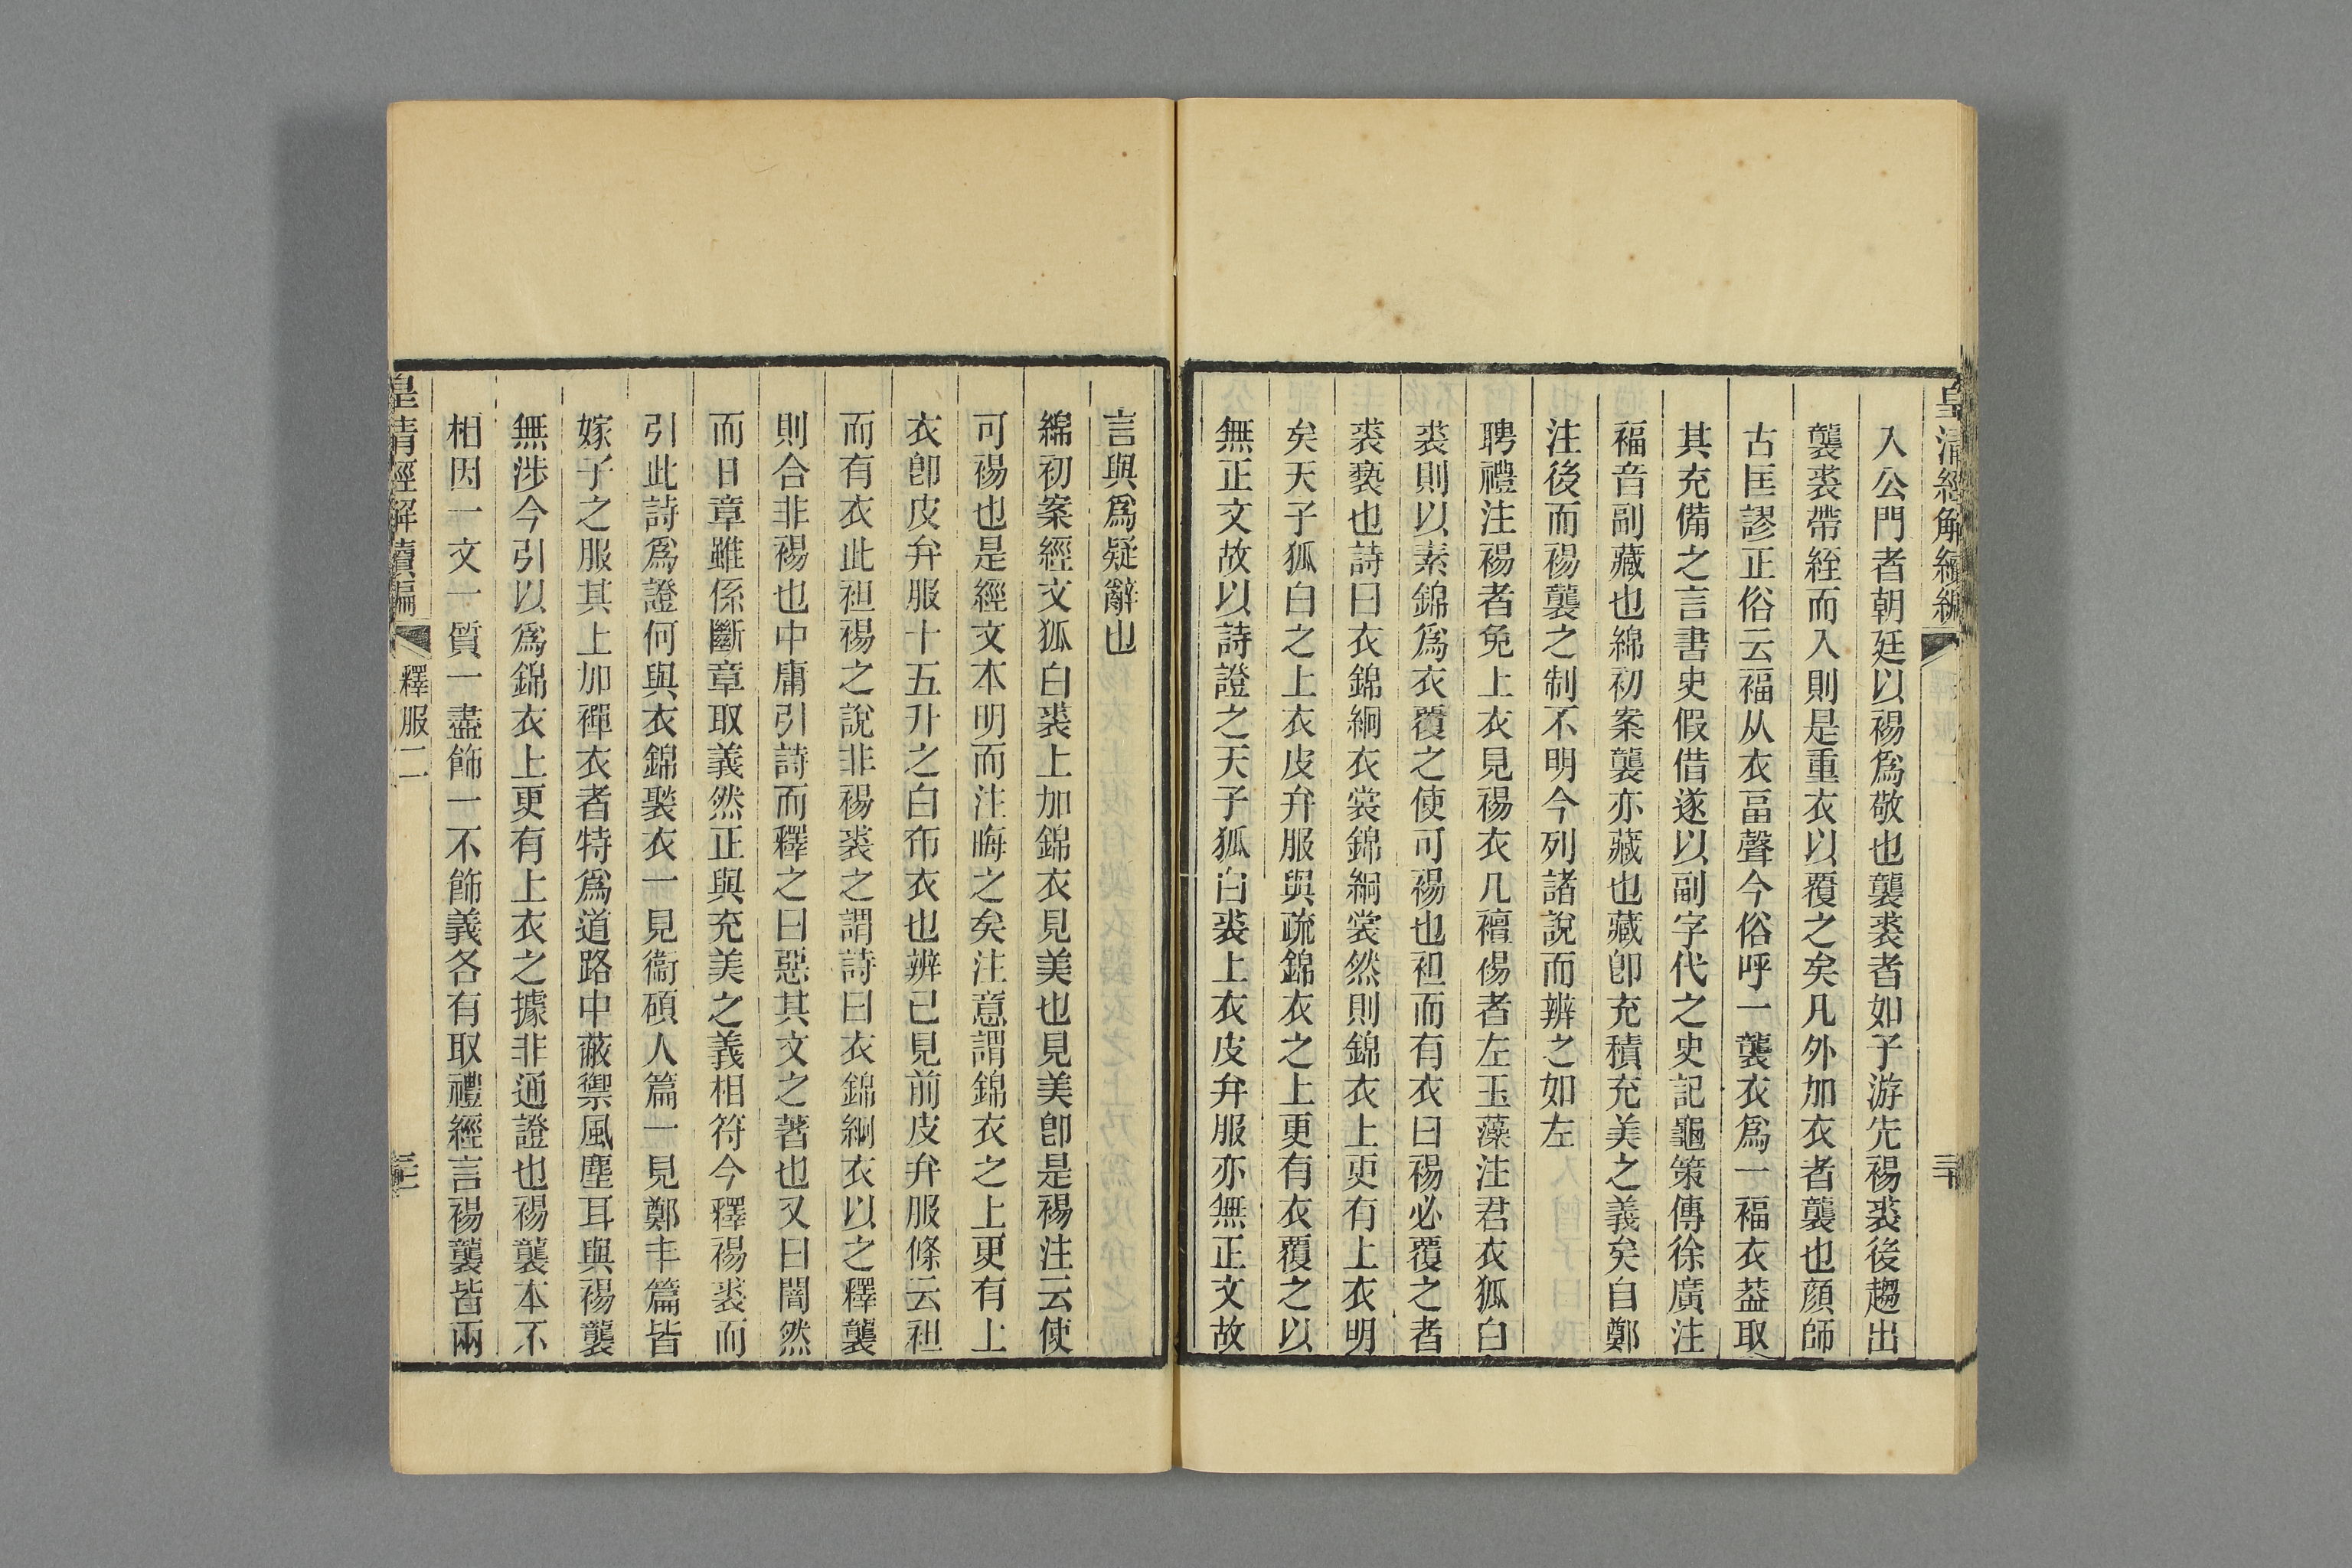 皇清經解續編
入公門者朝廷以裼爲敬也襲裘者如子游先裼裘後趨出
襲裘帶絰而入則是重衣以覆之矣凡外加衣者襲也顔師
古匡謬正俗云福从衣畐聲今俗呼一襲衣爲一福衣葢取
其充備之言書史假借遂以副字代之史記龜策傳徐廣注
福音副藏也綿初案襲亦藏也藏卽充積充美之義矣自鄭
注後而裼襲之制不明今列諸說而辨之如左
聘禮注裼者免上衣見裼衣凡襢裼者左玉藻注君衣狐白
裘則以素錦爲衣覆之使可裼也袒而有衣曰裼必覆之者
裘褻也詩曰衣錦絅衣裳錦絅裳然則錦衣上更有上衣明
矣天子狐白之上衣皮弁服與疏錦衣之上更有衣覆之以
無正文故以詩證之天子狐白裘上衣皮弁服亦無正文故
言與爲疑辭也
綿初案經文狐白裘上加錦衣見美也見美卽是裼注云使
可裼也是經文本明而注晦之矣注意謂錦衣之上更有上
衣卽皮弁服十五升之白布衣也辨已見前皮弁服條云袒
而有衣此袒裼之說非裼裘之謂詩曰衣錦絅衣以之釋襲
則合非裼也中庸引詩而釋之曰惡其文之著也又曰闇然
而日章雖係斷章取義然正與充美之義相符今釋裼裘而
引此詩爲證何與衣錦褧衣一見衞碩人篇一見鄭丰篇皆
嫁子之服其上加襌衣者特爲道路中蔽禦風塵耳與裼襲
無涉今引以爲錦衣上更有上衣之據非通證也裼襲本不
相因一文一質一盡飾一不飾義各有取禮經言裼襲皆兩
皇清經解續編 釋服二